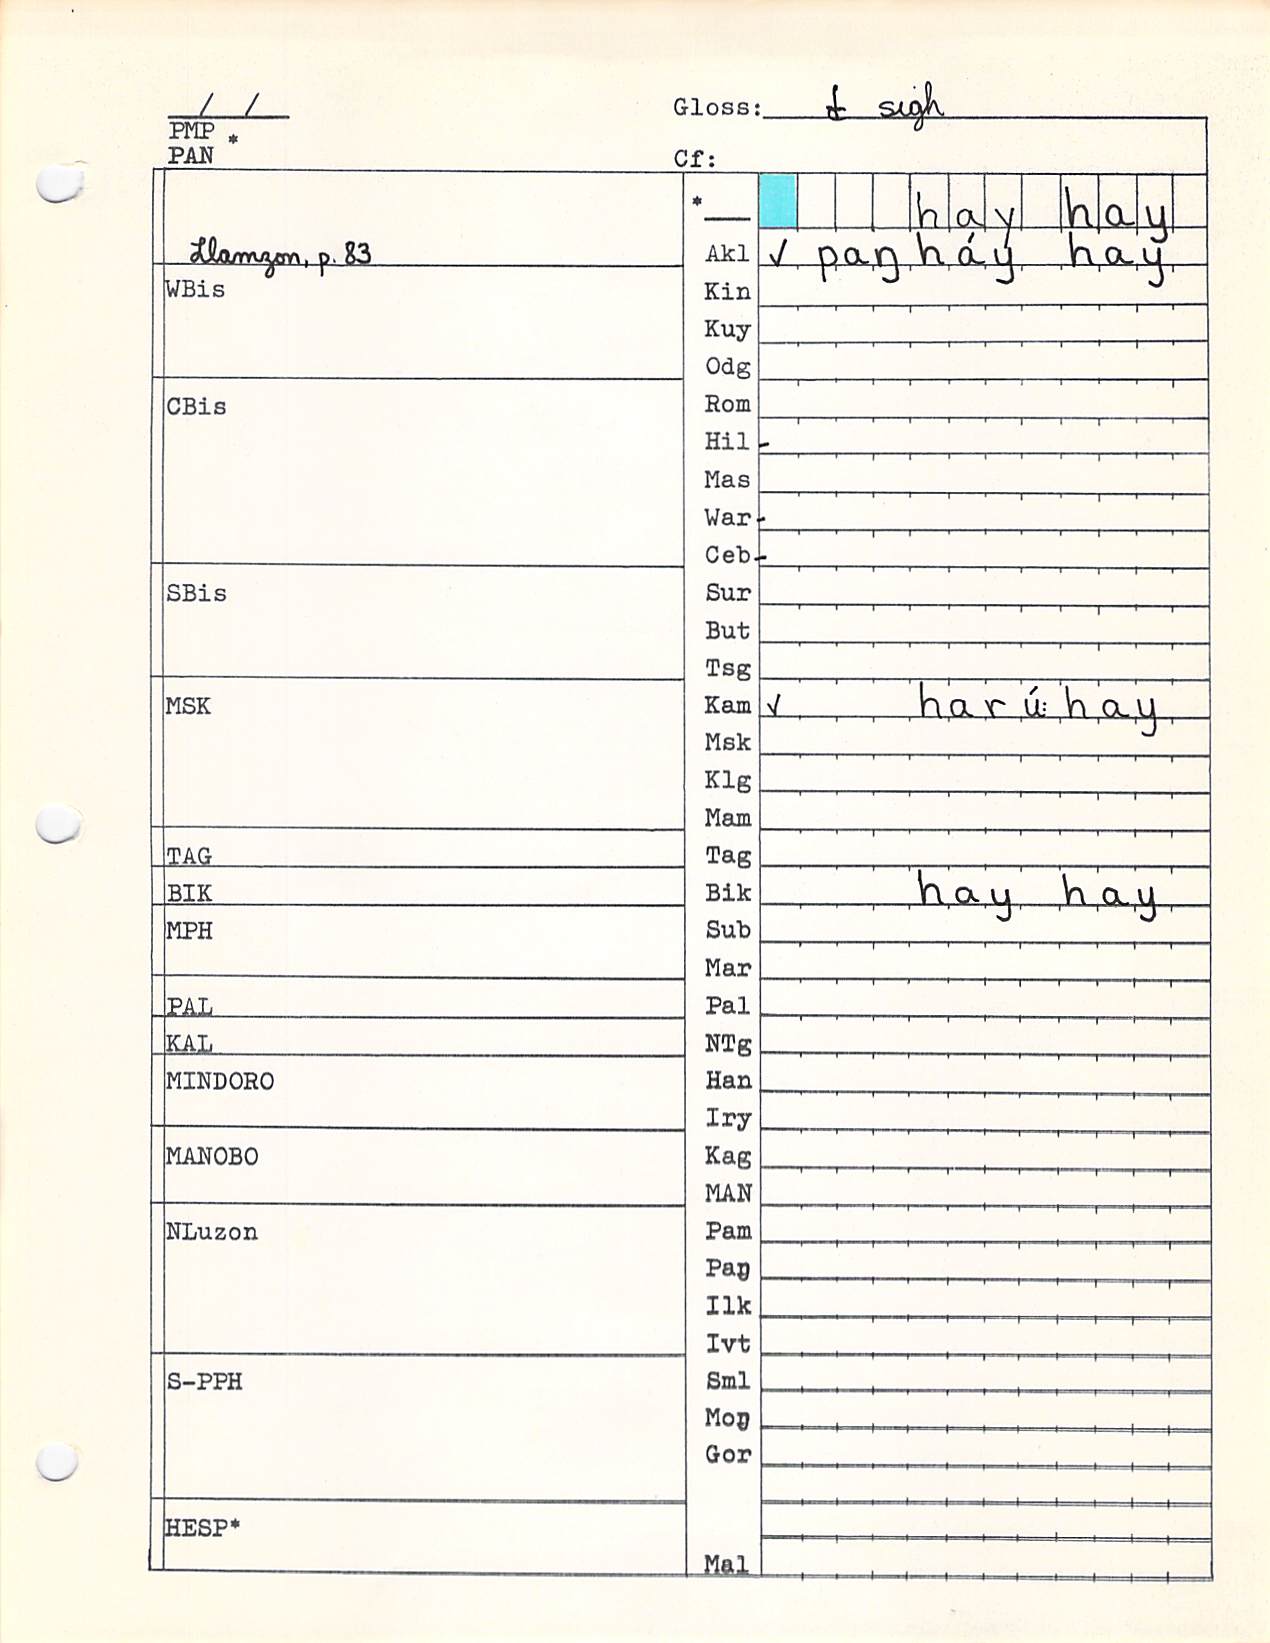 / /
PMP *
PAN
Gloss: sigh
Cf:
* hay hay
Llamzon, p. 83
Akl ✓ paŋháy hay
WBis
Kin
Kuy
Odg
CBis
Rom
Hil -
Mas
War -
Ceb -
SBis
Sur
But
Tsg
MSK
Kam ✓ harú:hay
Msk
Klg
Mam
TAG
Tag
BIK
Bik hay hay
MPH
Sub
Mar
PAL
Pal
KAL
NTg
MINDORO
Han
Iry
MANOBO
Kag
MAN
NLuzon
Pam
Paŋ
Ilk
Ivt
S-PPH
Sml
Moŋ
Gor
HESP*
Mal